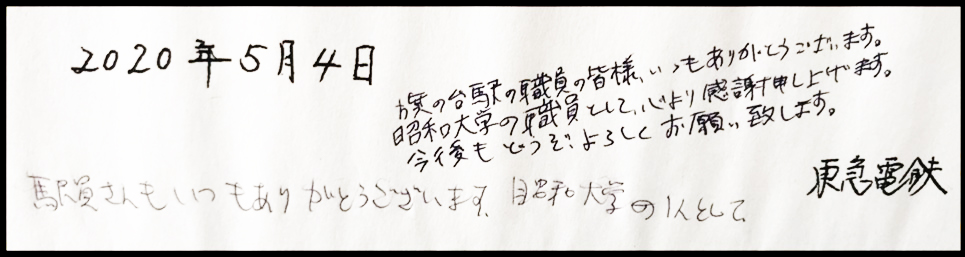 2020年5月4日
旗の台駅の職員の皆様、いつもありがとうございます。
昭和大学の職員として、心より感謝申し上げます。
今後もどうぞよろしくお願い致します。
東急電鉄
駅員さんもいつもありがとうございます。昭和大学の1人として、